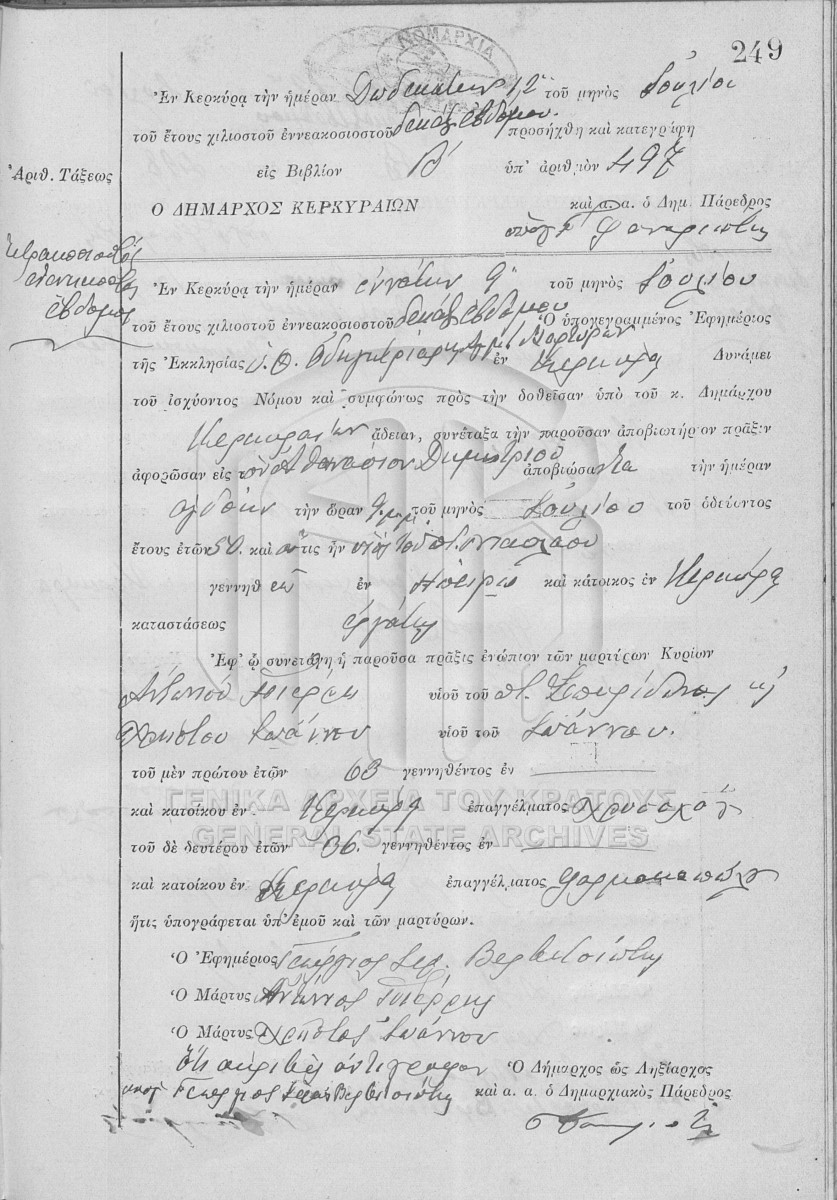 ΝΟΜΑΡΧΙΑ
249
Ἐν Κερκύρᾳ τὴν ἡμέραν Δωδεκάτην 12 τοῦ μηνὸς Ἰουλίου
τοῦ ἔτους χιλιοστοῦ ἐννεακοσιοστοῦ δεκάτου ἑβδόμου προσήχθη καὶ κατεγράφη
Ἀριθ. Τάξεως
εἰς Βιβλίον Β' ὑπ' ἀριθμὸν 497
Ο ΔΗΜΑΡΧΟΣ ΚΕΡΚΥΡΑΙΩΝ
καὶ α. α. ὁ Δημ. Πάρεδρος
τετρακοσιοστὸς
ἐνενηκοστὸς
ἕβδομος
Ἐν Κερκύρᾳ τὴν ἡμέραν ἐννάτην 9 τοῦ μηνὸς Ἰουλίου
τοῦ ἔτους χιλιοστοῦ ἐννεακοσιοστοῦ δεκάτου ἑβδόμου Ὁ ὑπογεγραμμένος Ἐφημέριος
τῆς Ἐκκλησίας Υ. Θ. Ὁδηγητρίας ἐν Κερκύρᾳ Δυνάμει
τοῦ ἰσχύοντος Νόμου καὶ συμφώνως πρὸς τὴν δοθεῖσαν ὑπὸ τοῦ κ. Δημάρχου
Κερκυραίων ἄδειαν, συνέταξα τὴν παροῦσαν ἀποβιωτήριον πρᾶξιν
ἀφορῶσαν εἰς τὸν Ἀθανάσιον Δημητρίου ἀποβιώσαντα τὴν ἡμέραν
ὀγδόην τὴν ὥραν 9 μ.μ. τοῦ μηνὸς Ἰουλίου τοῦ ὁδεύοντος
ἔτους ἐτῶν 50. καὶ ὅστις ἦν υἱὸς τοῦ π. Νικολάου
γεννηθεὶς ἐν Ἠπείρῳ καὶ κάτοικος ἐν Κερκύρᾳ
καταστάσεως ἐργάτης
Ἐφ' ᾧ συνετάχθη ἡ παροῦσα πρᾶξις ἐνώπιον τῶν μαρτύρων Κυρίων
Ἀντωνίου υἱοῦ τοῦ π. Σπυρίδωνος κ'
Χρήστου Ἰωάννου υἱοῦ τοῦ Ἰωάννου.
τοῦ μὲν πρώτου ἐτῶν 63 γεννηθέντος ἐν
ΓΕΝΙΚΑ ΑΡΧΕΙΑ ΤΟΥ ΚΡΑΤΟΥΣ
καὶ κατοίκου ἐν Κερκύρᾳ ἐπαγγέλματος Χρυσοχόου
GENERAL STATE ARCHIVES
τοῦ δὲ δευτέρου ἐτῶν 36. γεννηθέντος ἐν
καὶ κατοίκου ἐν Κερκύρᾳ ἐπαγγέλματος φαρμακοπώλου
ἥτις ὑπογράφεται ὑπ' ἐμοῦ καὶ τῶν μαρτύρων.
Ὁ Ἐφημέριος Γεώργιος Ἱερ. Βερβιτσιώτης
Ὁ Μάρτυς Ἀντώνιος
Ὁ Μάρτυς Χρῆστος Ἰωάννου
Ὅτι ἀκριβὲς ἀντίγραφον Ὁ Δήμαρχος ὡς Ληξίαρχος
Γεώργιος Ἱερεὺς Βερβιτσιώτης καὶ α. α. ὁ Δημαρχιακὸς Πάρεδρος